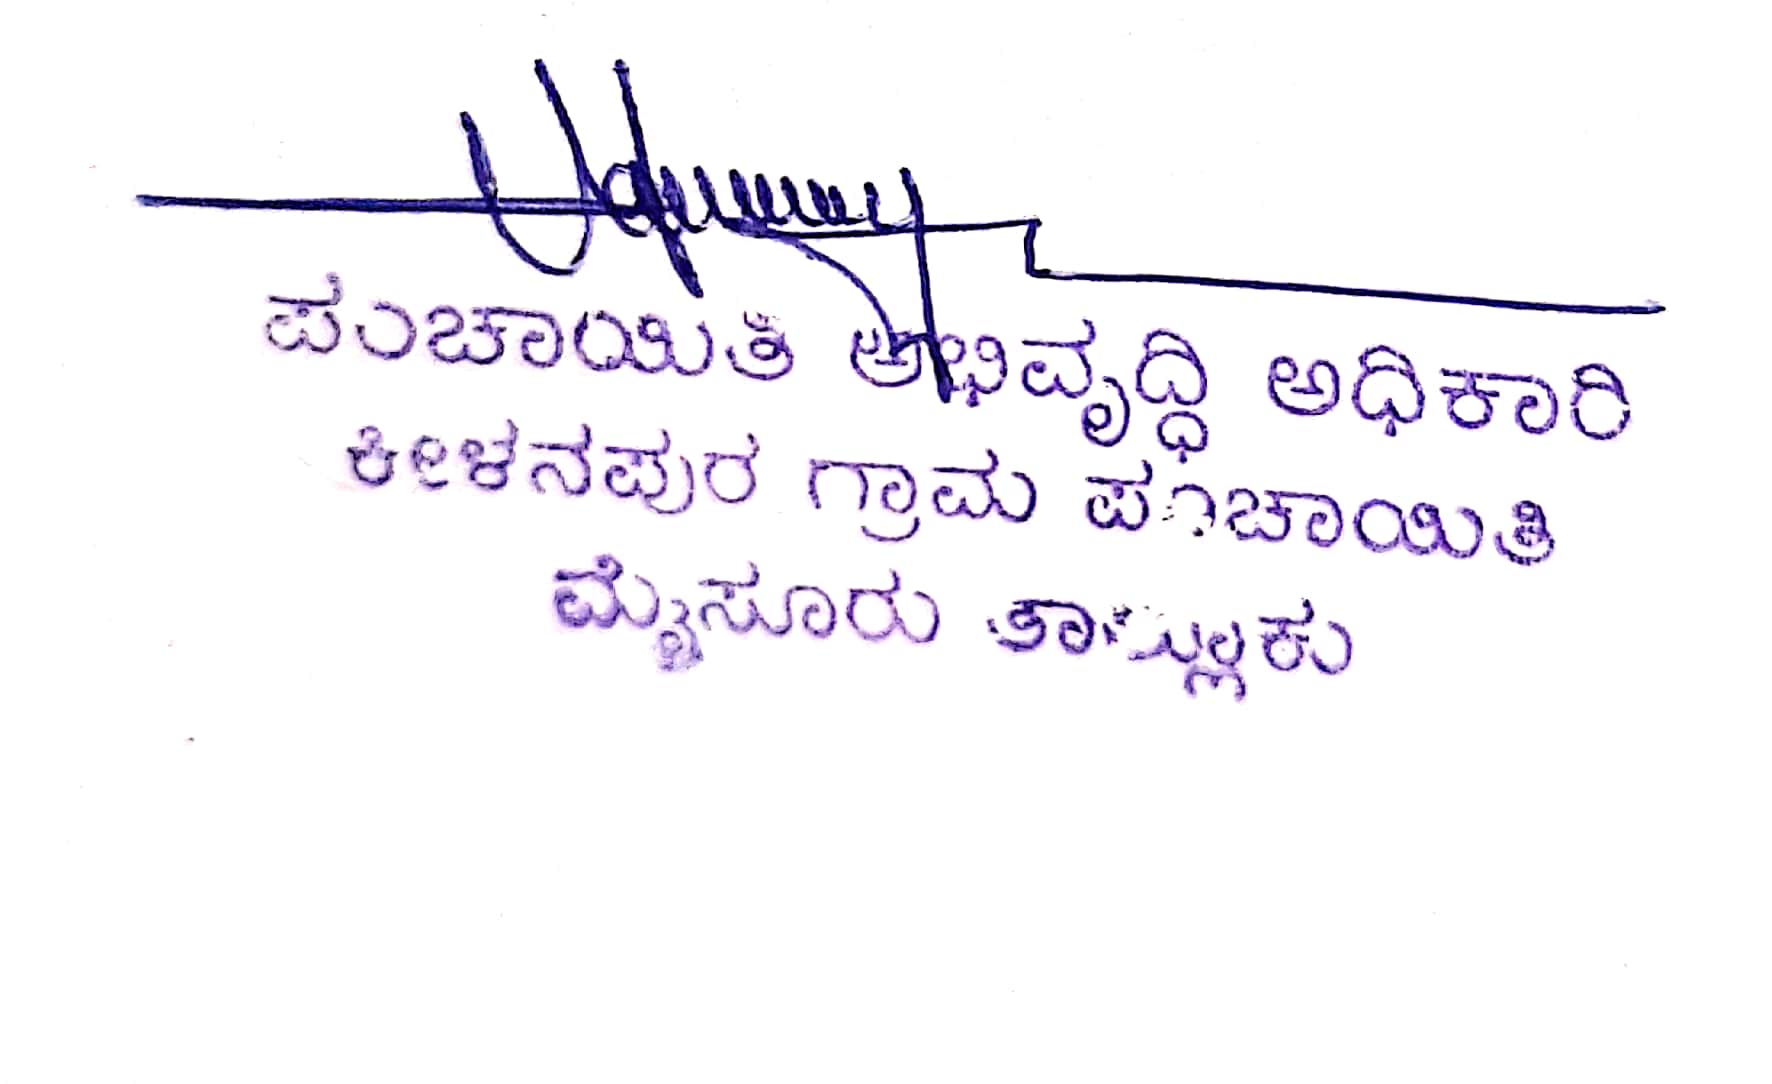 ಪಂಚಾಯಿತಿ ಅಭಿವೃದ್ಧಿ ಅಧಿಕಾರಿ
ಕೀಳನಪುರ ಗ್ರಾಮ ಪಂಚಾಯಿತಿ
ಮೈಸೂರು ತಾಲ್ಲೂಕು